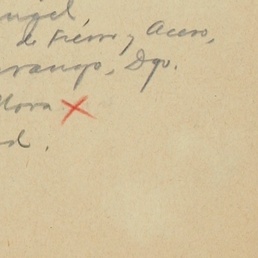 ngel,
de Fierro y Acero,
urango, Dgo.
Mora X
d.